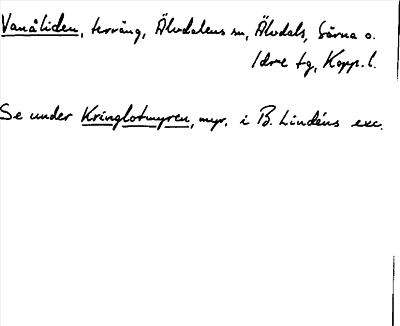 Vanåliden, terräng, Älvdalens sn, Älvdals, Särna o.
Idre tg, Kopp. l.
Se under Kringlotmyren, myr, i B. Lindéns exc.